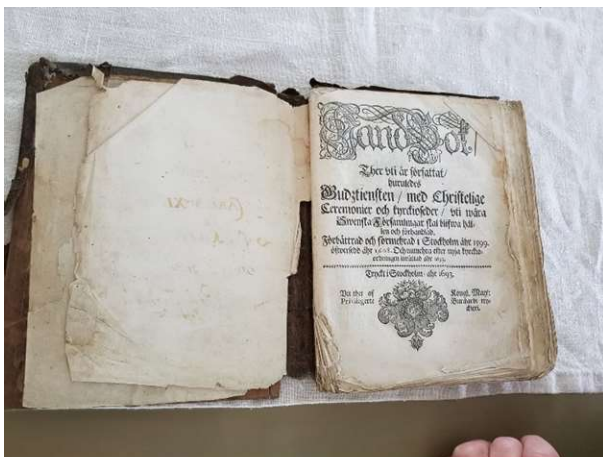 HandBok/
Ther vti är författat/
huruledes
Gudztiensten / med Christelige
Ceremonier och kyrckioseder / vti wåra
Swenska Församlingar skal blifwa hål-
len och förhandlad.
Förbättrad och förmehrad i Stockholm åhr 1599.
öfwersedd åhr 1608. Och numehra efter nyja kyrckio-
ordningen inrättad åhr 1693.
Tryckt i Stockholm åhr 1693.
Vti thet af Kongl. May:
Privilegerte Burchardi try-
ckeri.